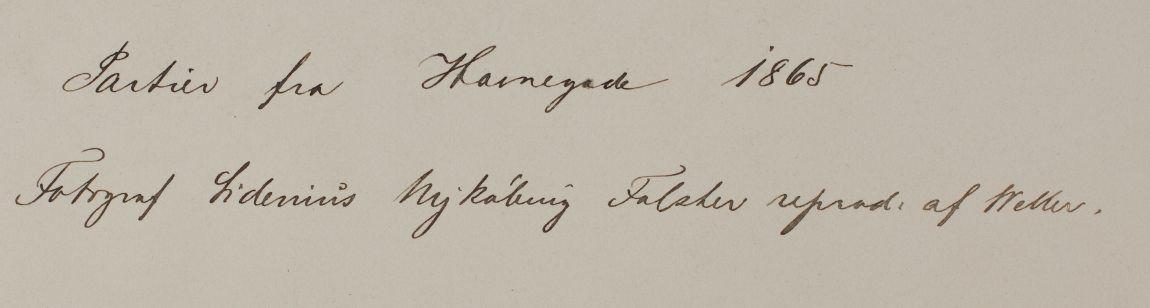 Partier fra Havnegade 1865
Fotograf Sidenius Nykøbing Falster reprod. af Weller.